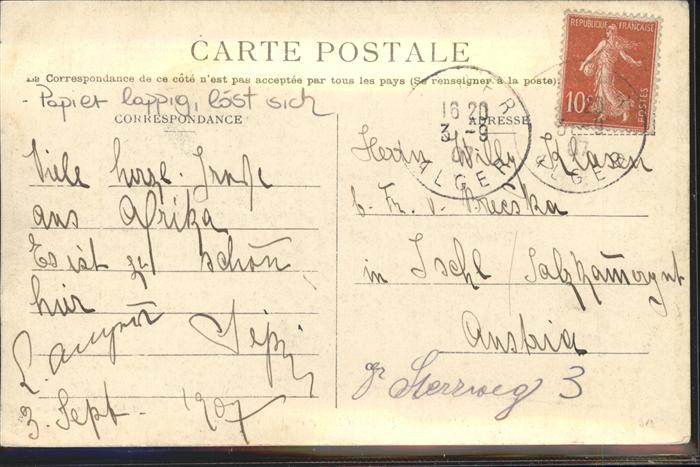 CARTE POSTALE
La Correspondance de ce côté n'est pas acceptée par tous les pays (Se renseigner à la poste):
- Papier lappig, löst sich
CORRESPONDANCE
Viele herzl. Grüße
aus Afrika
Es ist zu schön
hier
Sepp
3. Sept. 1907
ADRESSE
Herrn Willy Klasen
b. Fr. v. Breeska
in Ischl / Salzkammergut
Austria
gr Sternweg 3
REPUBLIQUE FRANÇAISE
10
POSTES
16 20
3 - 9
07
ALGER
20
9
07
ALGER